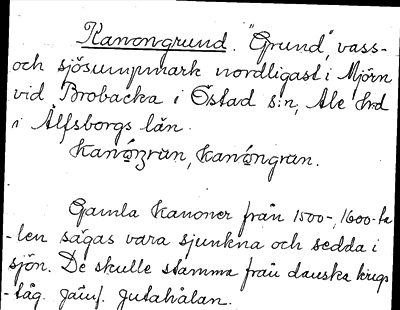 Kanongrund. "Grund", vass-
och sjösumpmark nordligast i Mjörn
vid Brobacka i Östad s:n, Ale hrd
i Älfsborgs län.
Kanongran.
Gamla kanoner från 1500-, 1600-ta
-len sägas vara sjunkna och sedda i
sjön. De skulle stamma från danska krigs
-tåg. jämf. Jutahålan.